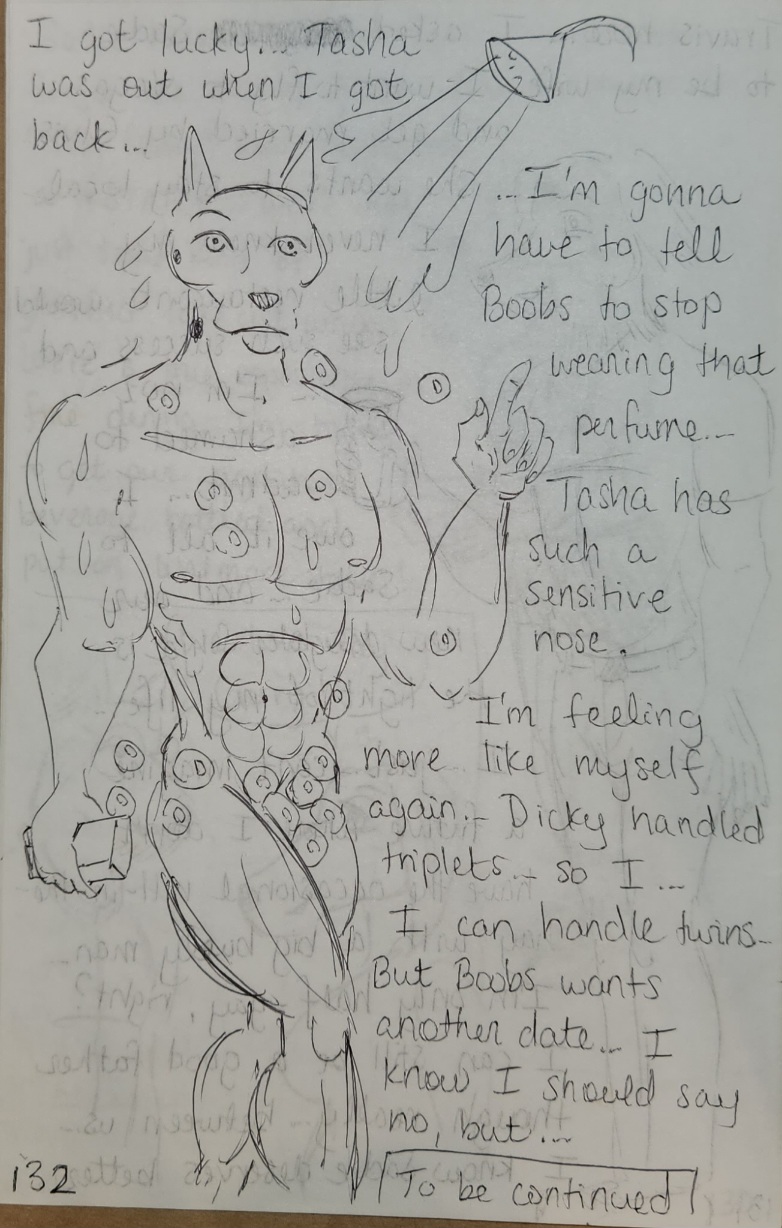 I got lucky... Tasha
was out when I got
back...
...I'm gonna
have to tell
Boobs to stop
wearing that
perfume...
Tasha has
such a
sensitive
nose.
I'm feeling
more like myself
again... Dicky handled
triplets... so I...
I can handle twins...
But Boobs wants
another date... I
know I should say
no, but...
To be continued
132